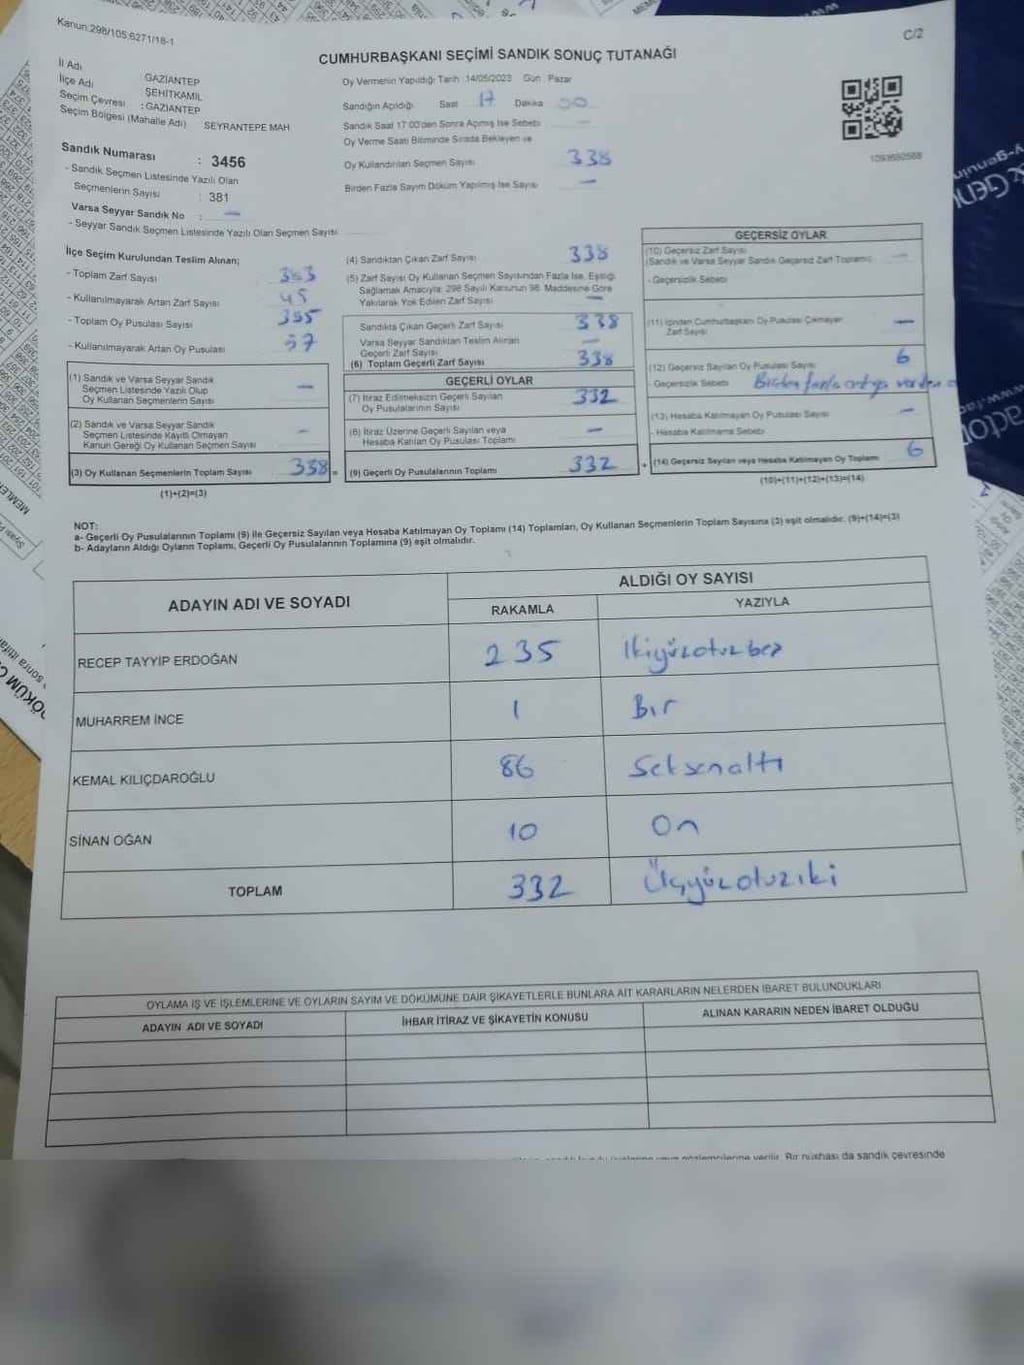 Kanun:298/105;6271/18-1
C/2
CUMHURBAŞKANI SEÇİMİ SANDIK SONUÇ TUTANAĞI
İl Adı GAZİANTEP
İlçe Adı ŞEHİTKAMİL
Seçim Çevresi : GAZİANTEP
Seçim Bölgesi (Mahalle Adı) SEYRANTEPE MAH
Sandık Numarası : 3456
- Sandık Seçmen Listesinde Yazılı Olan
Seçmenlerin Sayısı : 381
Varsa Seyyar Sandık No : —
- Seyyar Sandık Seçmen Listesinde Yazılı Olan Seçmen Sayısı
Oy Vermenin Yapıldığı Tarih 14/05/2023 Gün Pazar
Sandığın Açıldığı Saat 17 Dakika 00
Sandık Saat 17:00'den Sonra Açılmış İse Sebebi —
Oy Verme Saati Bitiminde Sırada Bekleyen ve
Oy Kullandırılan Seçmen Sayısı 338
Birden Fazla Sayım Döküm Yapılmış İse Sayısı —
1093680568
İlçe Seçim Kurulundan Teslim Alınan;
- Toplam Zarf Sayısı 383
- Kullanılmayarak Artan Zarf Sayısı 45
- Toplam Oy Pusulası Sayısı 395
- Kullanılmayarak Artan Oy Pusulası 57
(1) Sandık ve Varsa Seyyar Sandık
Seçmen Listesinde Yazılı Olup
Oy Kullanan Seçmenlerin Sayısı —
(2) Sandık ve Varsa Seyyar Sandık
Seçmen Listesinde Kayıtlı Olmayan
Kanun Gereği Oy Kullanan Seçmen Sayısı —
(3) Oy Kullanan Seçmenlerin Toplam Sayısı 338 =
(1)+(2)=(3)
(4) Sandıktan Çıkan Zarf Sayısı 338
(5) Zarf Sayısı Oy Kullanan Seçmen Sayısından Fazla İse, Eşitliği
Sağlamak Amacıyla; 298 Sayılı Kanunun 98. Maddesine Göre
Yakılarak Yok Edilen Zarf Sayısı —
Sandıkta Çıkan Geçerli Zarf Sayısı 338
Varsa Seyyar Sandıktan Teslim Alınan
Geçerli Zarf Sayısı —
(6) Toplam Geçerli Zarf Sayısı 338
GEÇERLİ OYLAR
(7) İtiraz Edilmeksizin Geçerli Sayılan
Oy Pusulalarının Sayısı 332
(8) İtiraz Üzerine Geçerli Sayılan veya
Hesaba Katılan Oy Pusulası Toplamı —
(9) Geçerli Oy Pusulalarının Toplamı 332 +
GEÇERSİZ OYLAR
(10) Geçersiz Zarf Sayısı
(Sandık ve Varsa Seyyar Sandık Geçersiz Zarf Toplamı) —
- Geçersizlik Sebebi
(11) İçinden Cumhurbaşkanı Oy Pusulası Çıkmayan
Zarf Sayısı —
(12) Geçersiz Sayılan Oy Pusulası Sayısı 6
- Geçersizlik Sebebi Birden fazla
(13) Hesaba Katılmayan Oy Pusulası Sayısı —
- Hesaba Katılmama Sebebi
(14) Geçersiz Sayılan veya Hesaba Katılmayan Oy Toplamı 6
(10)+(11)+(12)+(13)=(14)
NOT:
a- Geçerli Oy Pusulalarının Toplamı (9) ile Geçersiz Sayılan veya Hesaba Katılmayan Oy Toplamı (14) Toplamları, Oy Kullanan Seçmenlerin Toplam Sayısına (3) eşit olmalıdır. (9)+(14)=(3)
b- Adayların Aldığı Oyların Toplamı, Geçerli Oy Pusulalarının Toplamına (9) eşit olmalıdır.
ADAYIN ADI VE SOYADI
ALDIĞI OY SAYISI
RAKAMLA YAZIYLA
RECEP TAYYİP ERDOĞAN 235 İkiyüzotuzbeş
MUHARREM İNCE 1 Bir
KEMAL KILIÇDAROĞLU 86 Seksenaltı
SİNAN OĞAN 10 On
TOPLAM 332 Üçyüzotuziki
OYLAMA İŞ VE İŞLEMLERİNE VE OYLARIN SAYIM VE DÖKÜMÜNE DAİR ŞİKAYETLERLE BUNLARA AİT KARARLARIN NELERDEN İBARET BULUNDUKLARI
ADAYIN ADI VE SOYADI İHBAR İTİRAZ VE ŞİKAYETİN KONUSU ALINAN KARARIN NEDEN İBARET OLDUĞU
verilir. Bir nüshası da sandık çevresinde